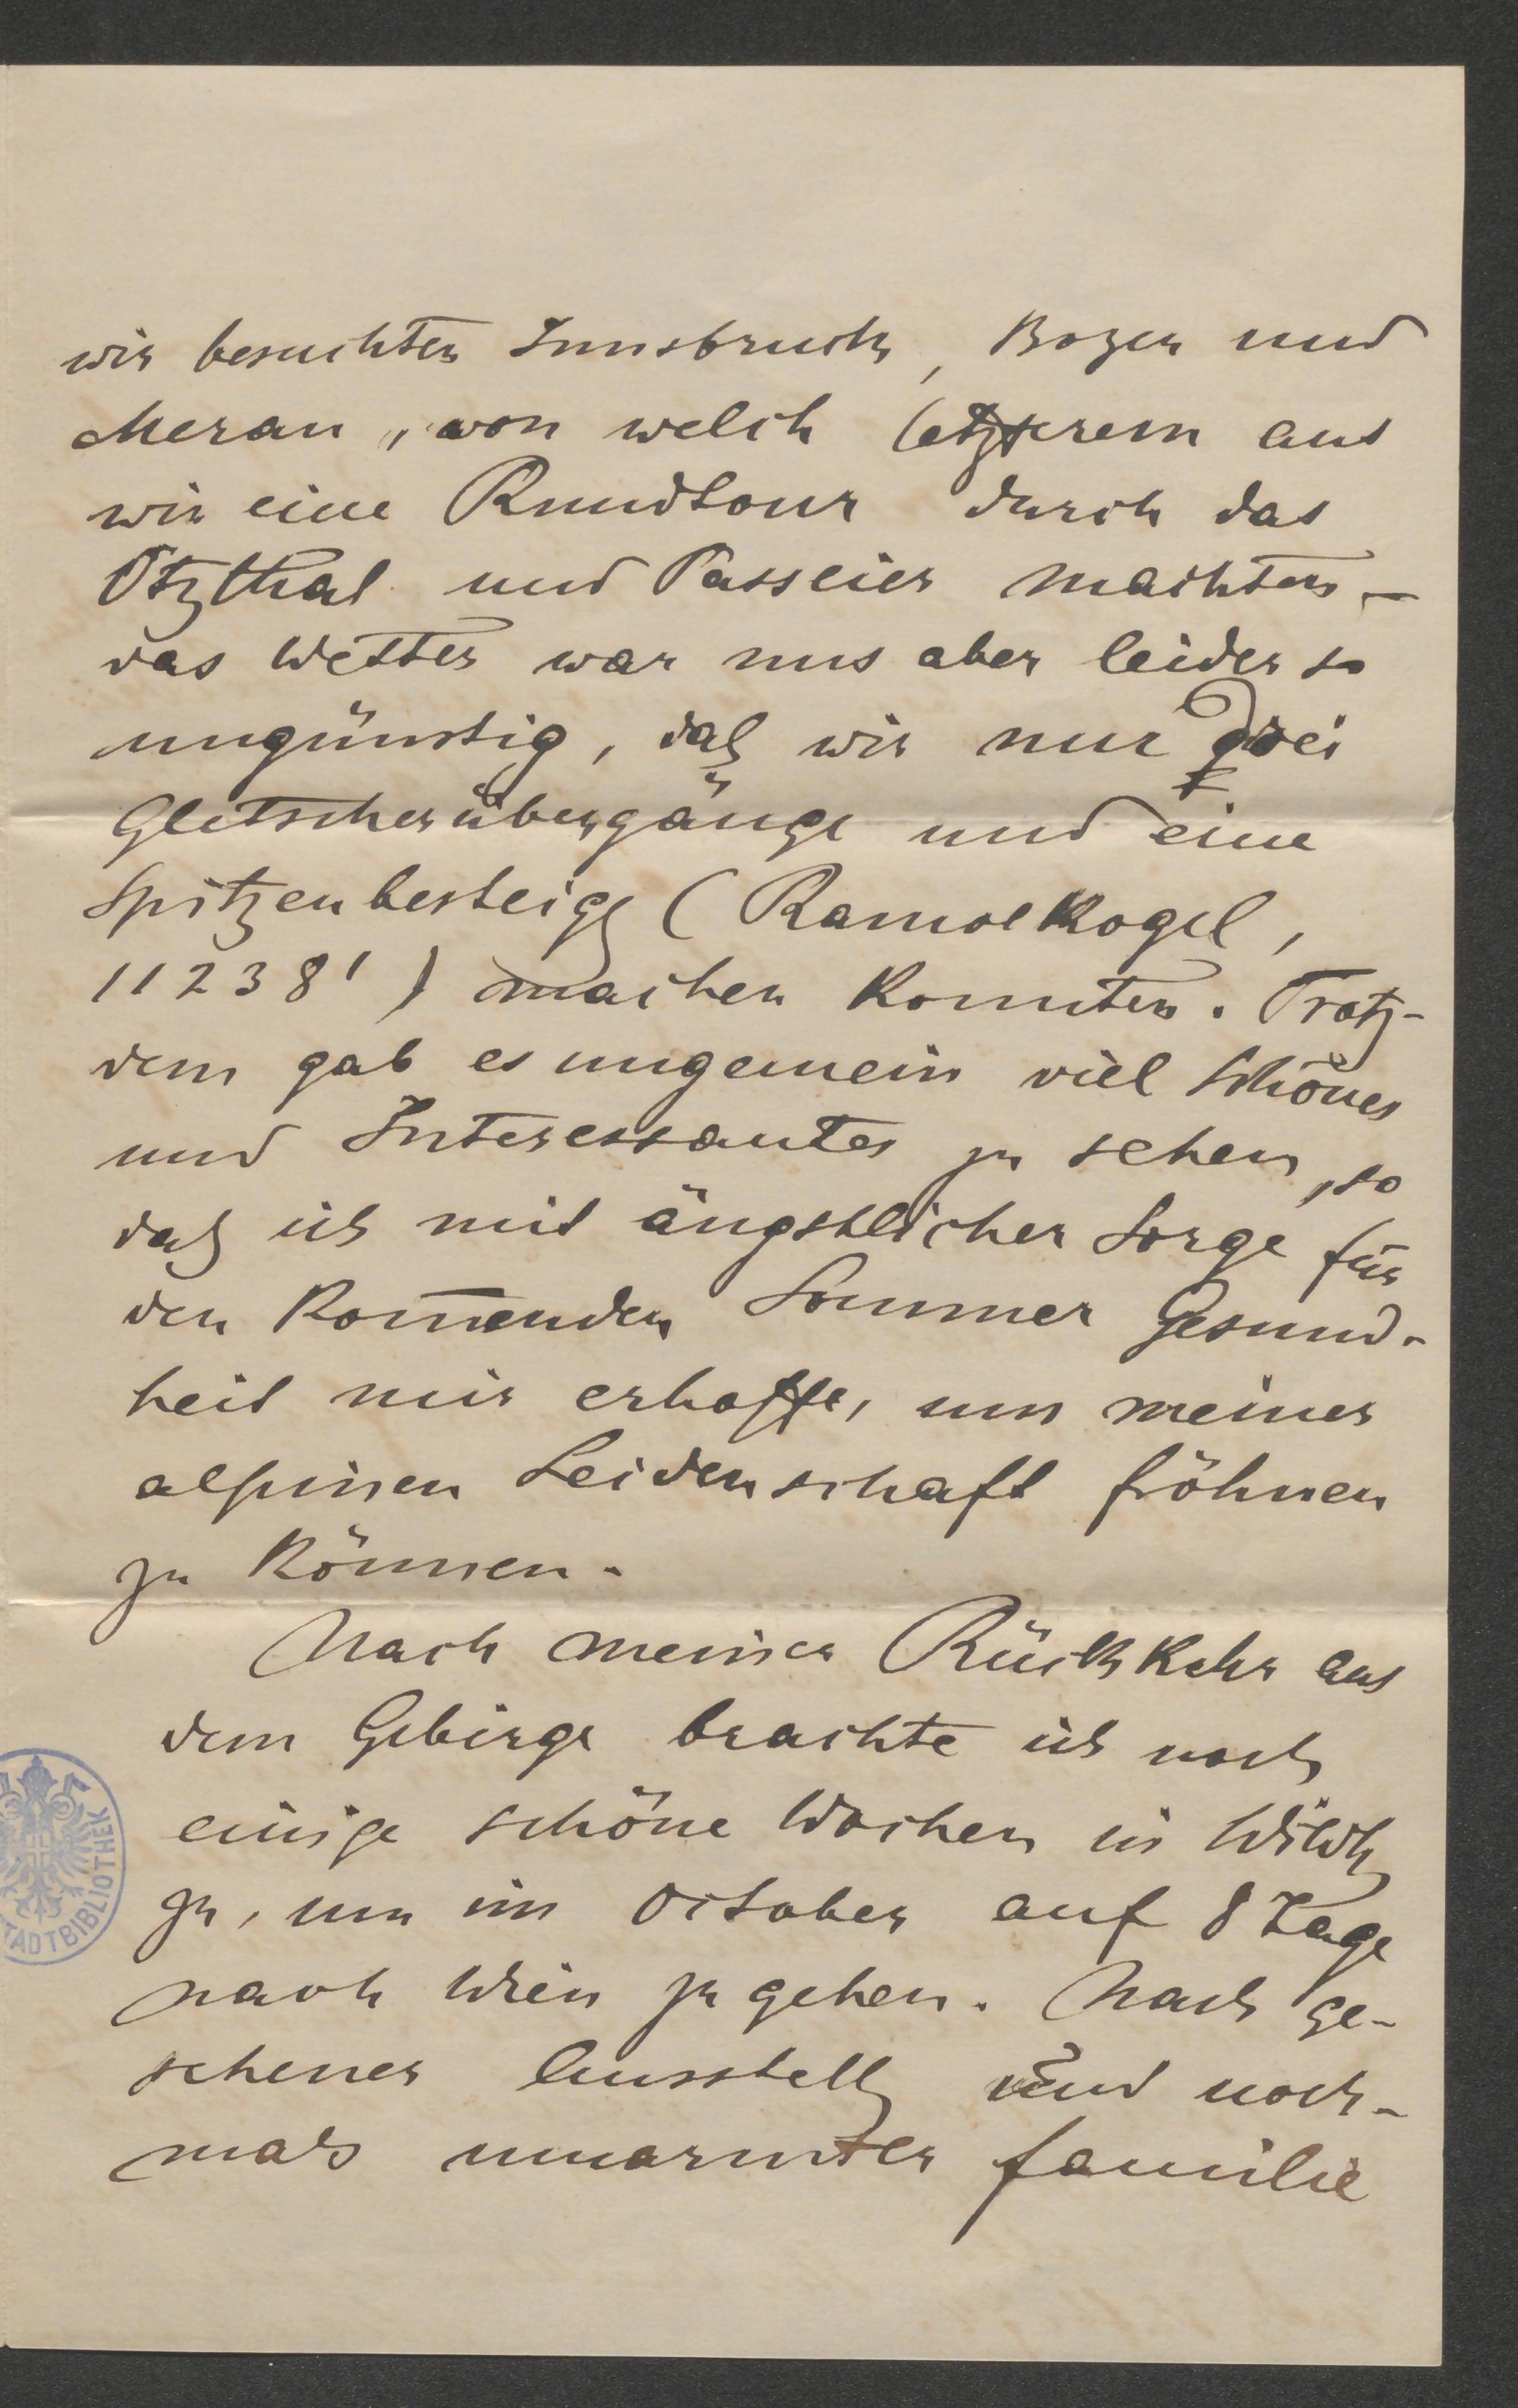 wir besuchten Innsbruck, Bozen und
Meran, von welch letzterem aus
wir eine Rundtour durch das
Ötzthal und Passeier machten –
das Wetter war uns aber leider so
ungünstig, daß wir nur zwei
Gletscherübergänge und eine
Spitzenbesteigg (Ramolkogel,
11238') machen konnten. Trotz-
dem gab es ungemein viel Schönes
und Interessantes zu sehen, so
daß ich mit ängstlicher Sorge für
den kom̅enden Sommer Gesund-
heit mir erhoffe, um meiner
alpinen Leidenschaft fröhnen
zu können.
Nach meiner Rückkehr aus
dem Gebirge brachte ich noch
einige schöne Wochen in
zu, um im October auf 8 Tage
nach Wien zu gehen. Nach ge-
sehener Ausstellg und noch-
mals umarmter Familie
STADTBIBLIOTHEK